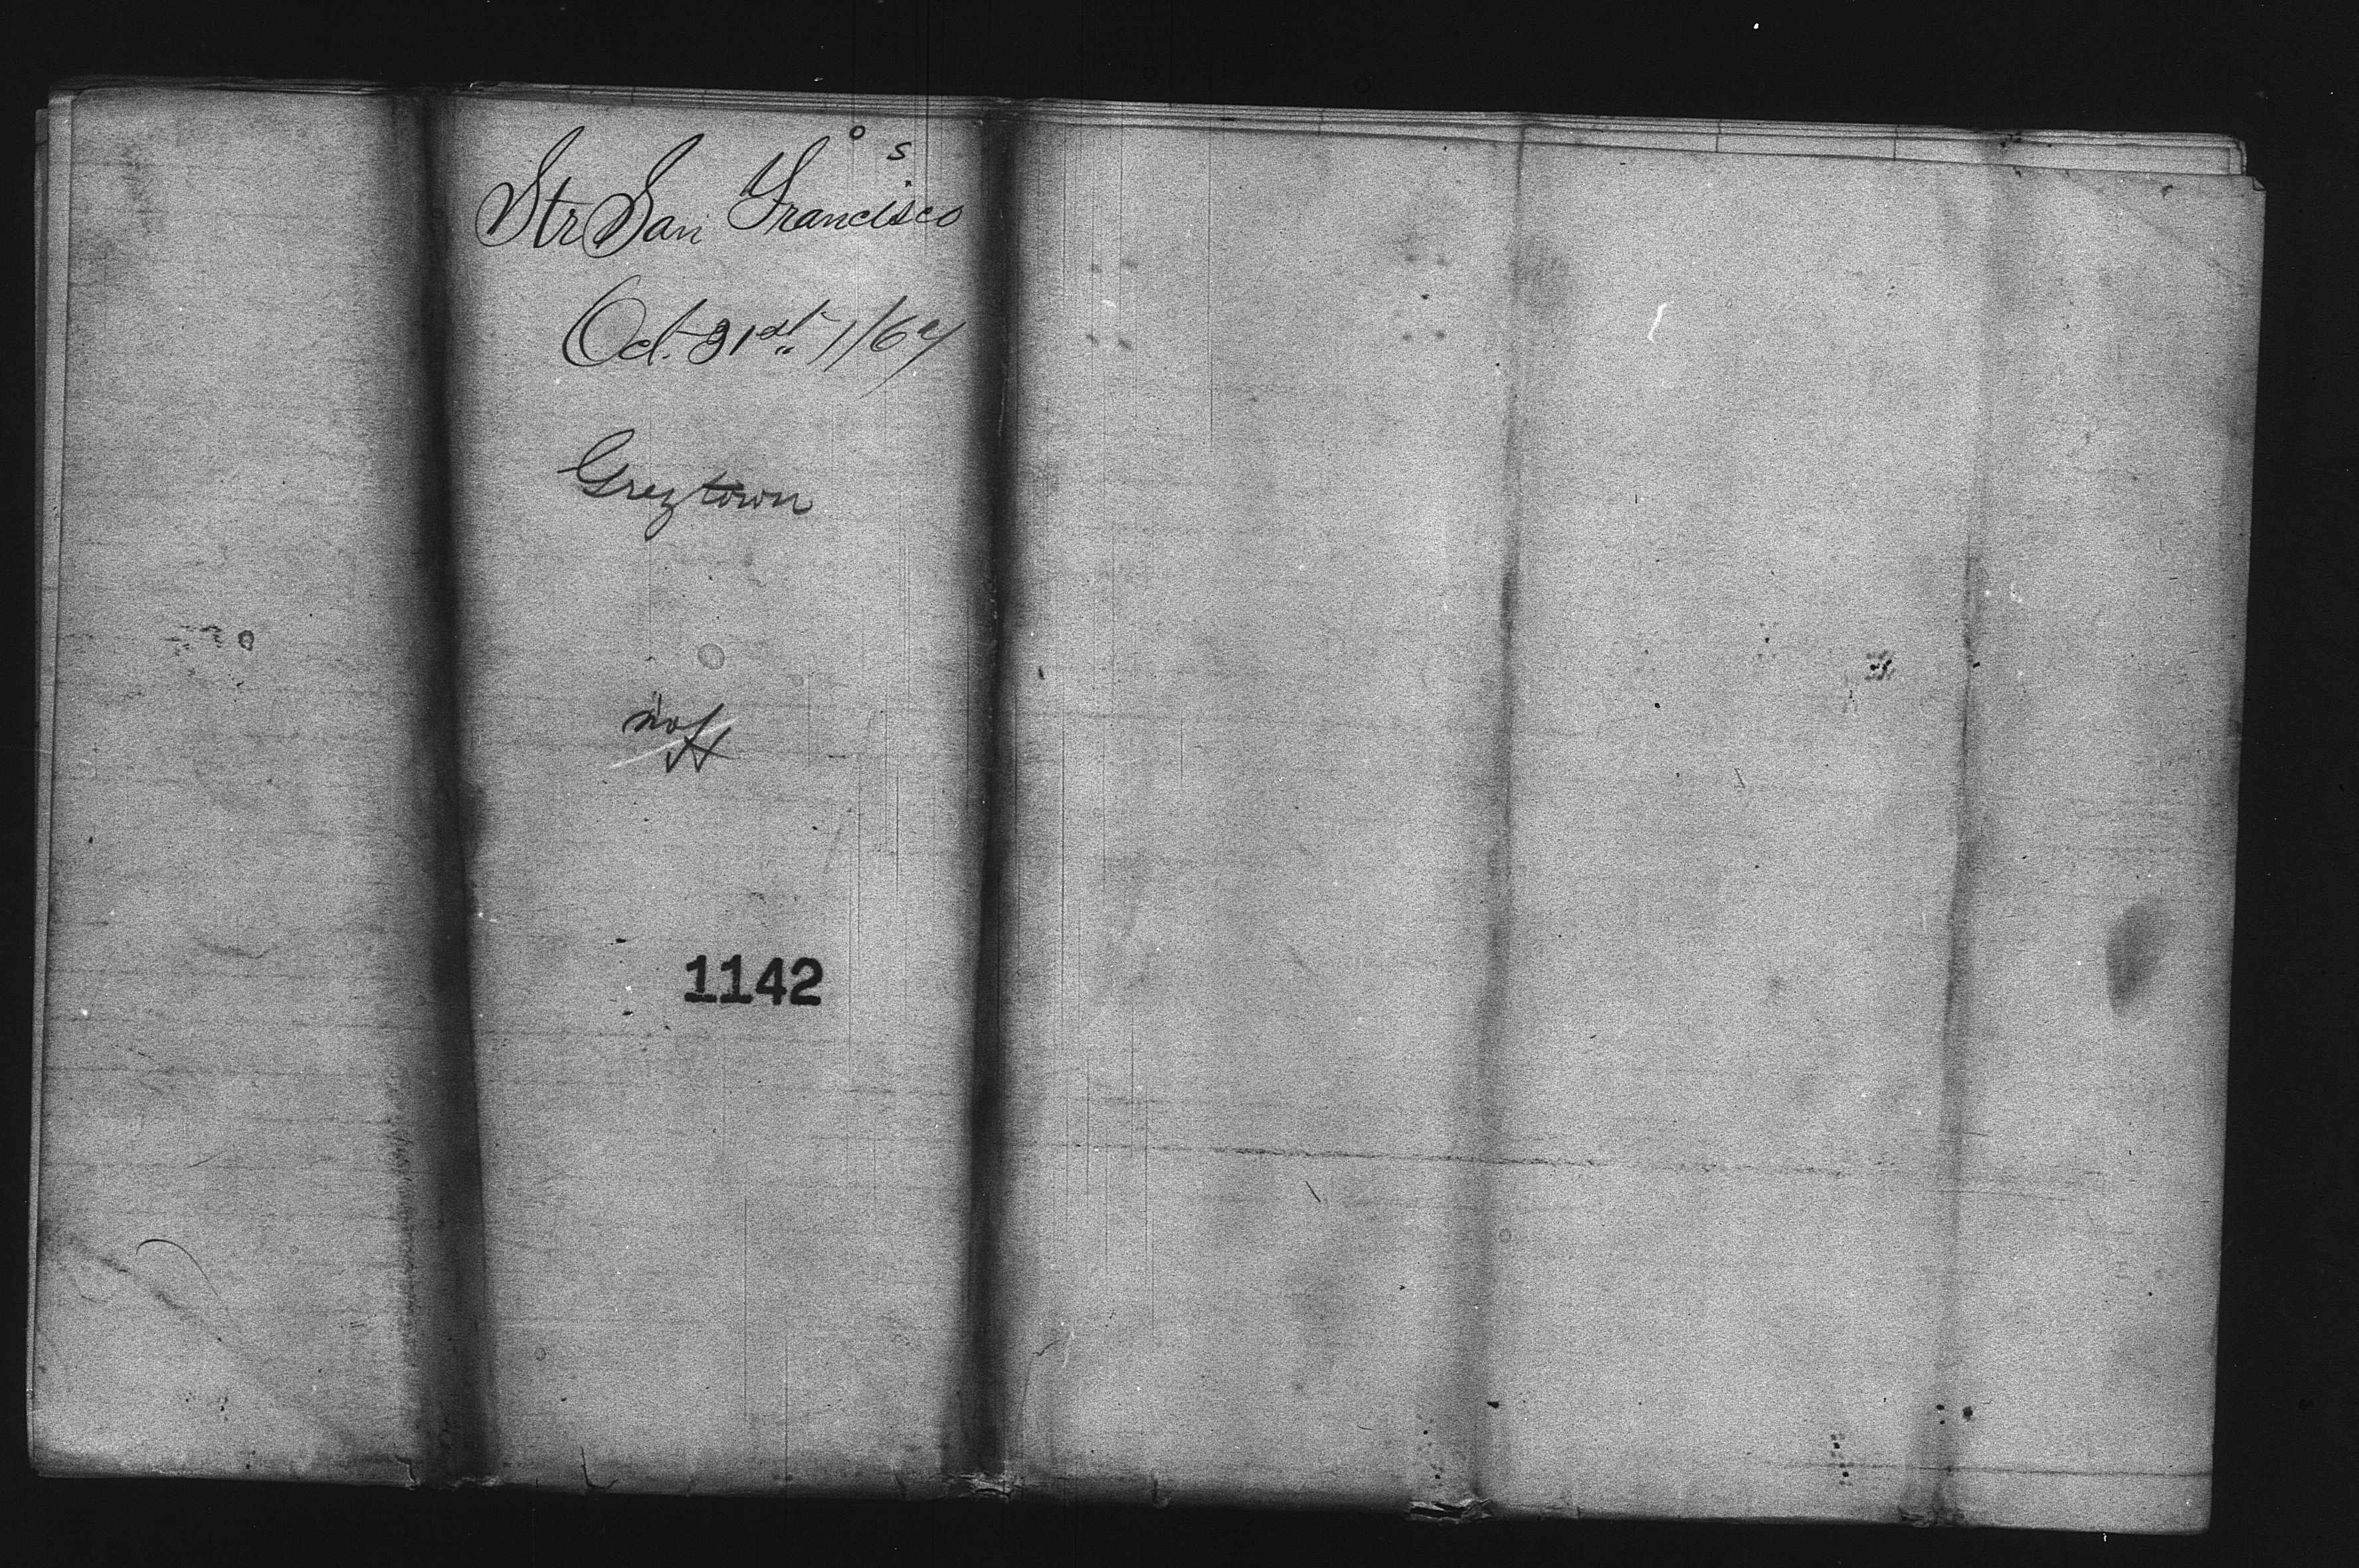 Str San Francisco
Oct. 31st 1/64
Greytown
1142